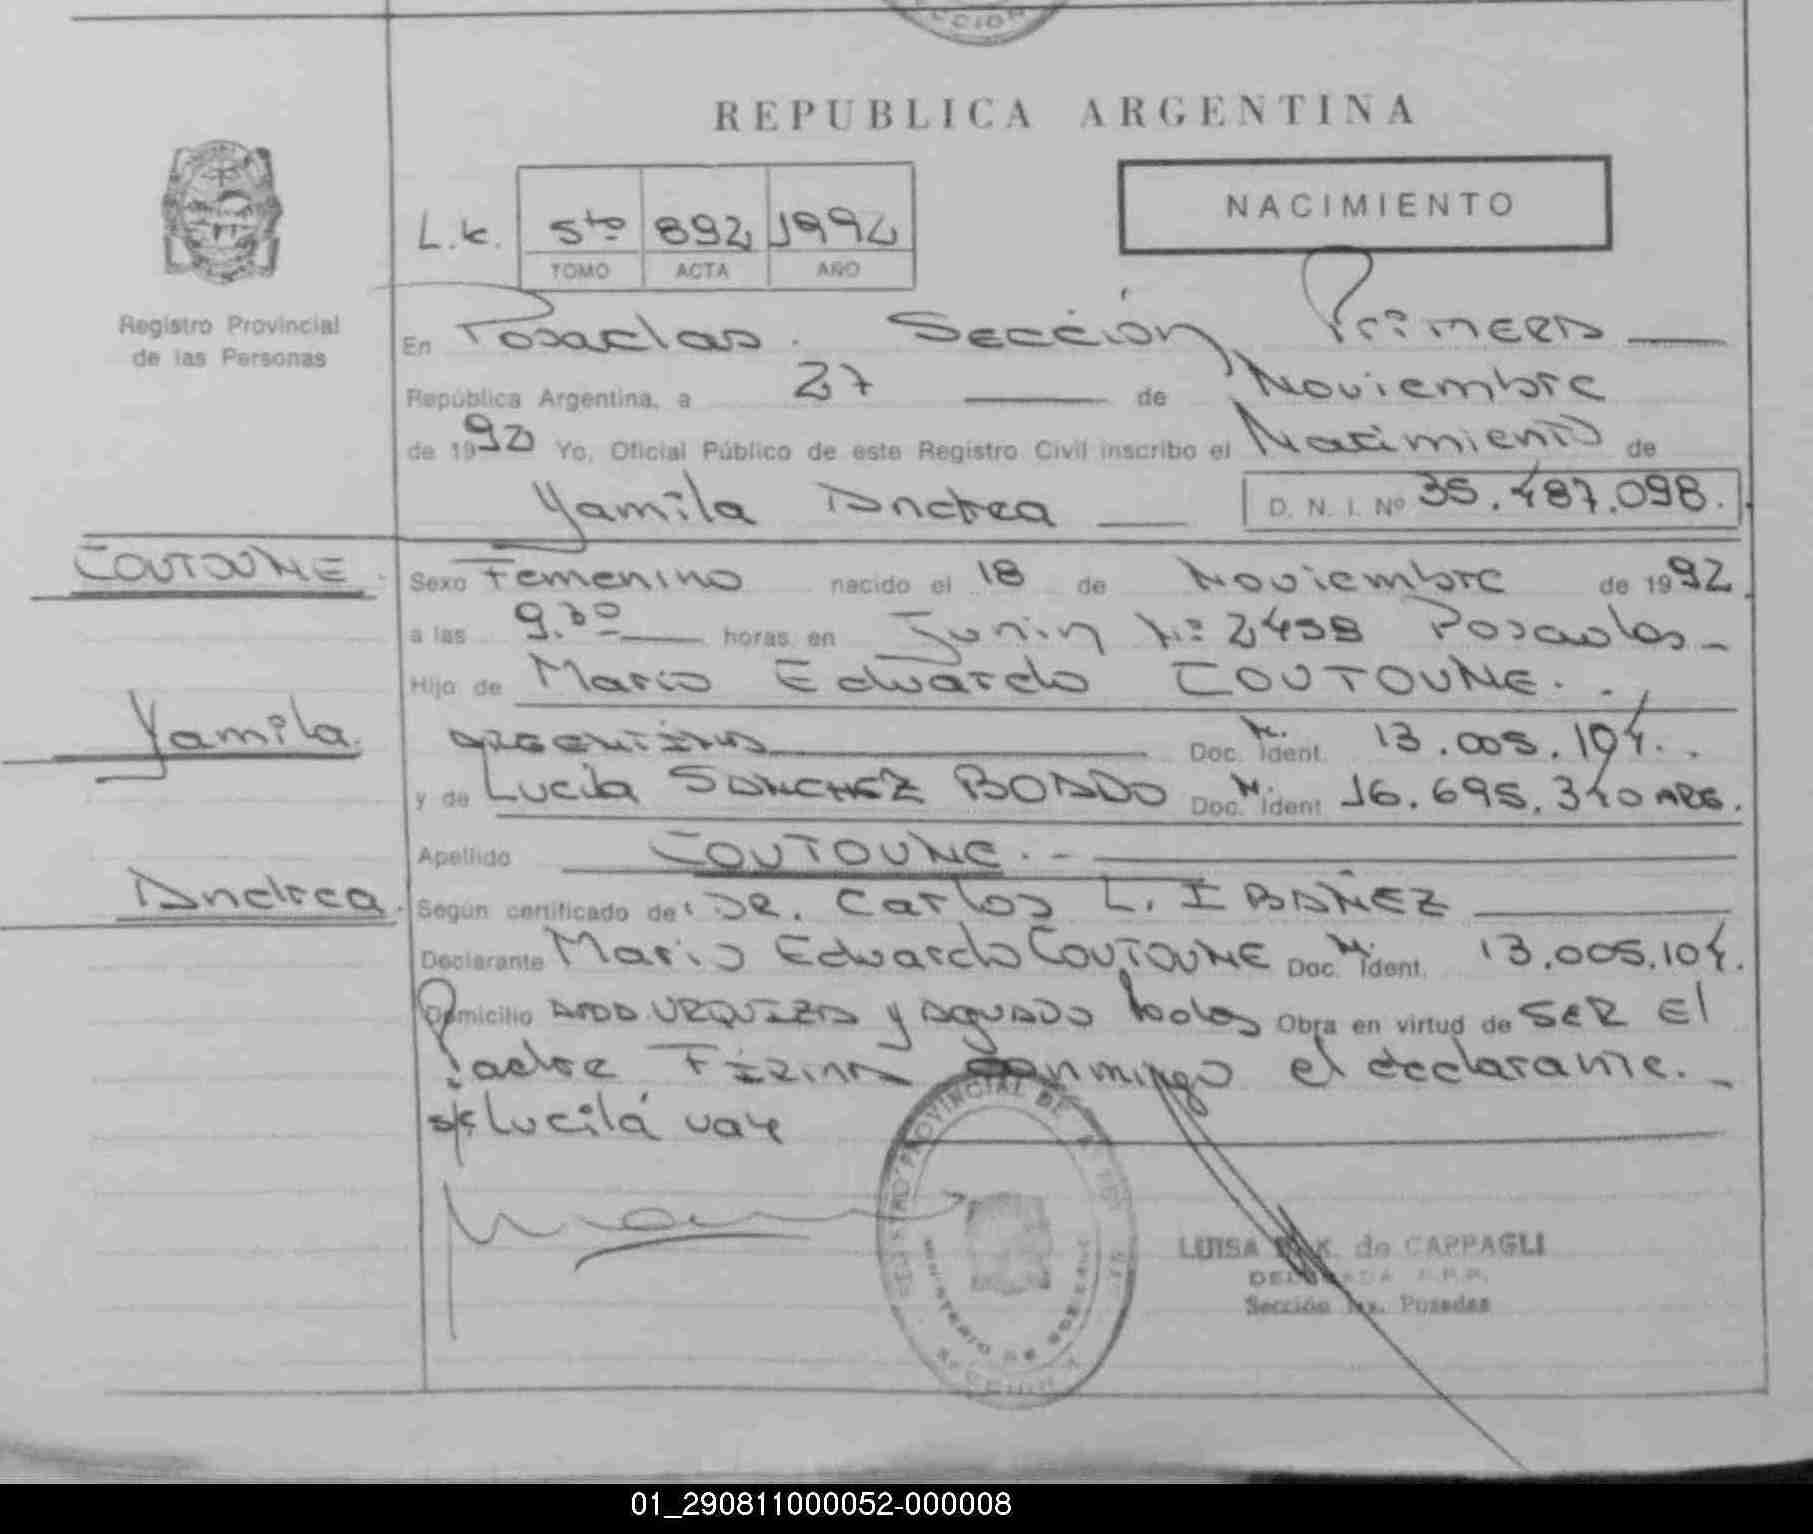 REPUBLICA ARGENTINA
NACIMIENTO
L.k. 5to 892 1992
TOMO ACTA AÑO
Registro Provincial
de las Personas
En Posadas. Sección Primera
República Argentina, a 27 de Noviembre
de 1992 Yo, Oficial Público de este Registro Civil inscribo el Nacimiento de
Yamila Andrea D. N. I. Nº 35.487.098.
COUTOUNE.
Sexo Femenino nacido el 18 de Noviembre de 1992.
a las 9.30 horas en Junin Nº 2498 Posadas
Hijo de Mario Eduardo COUTOUNE.
Yamila
argentinos Doc. Ident. M. 13.005.104.
y de Lucila SANCHEZ BOADO Doc. Ident M. 16.695.340 ARG.
Apellido COUTOUNE.
Andrea.
Según certificado de: DR. Carlos L. IBAÑEZ
Declarante Mario Eduardo COUTOUNE Doc. Ident. M. 13.005.104.
Domicilio AVDA URQUIZA y AGUADO Obra en virtud de SER El
Padre Firma conmigo el declarante.
Lucila vale
REGISTRO PROVINCIAL DE
MINISTERIO DE GOBIERNO
SECCION
LUISA K. de CAPPAGLI
DELEGADA
Sección Posadas
01_290811000052-000008